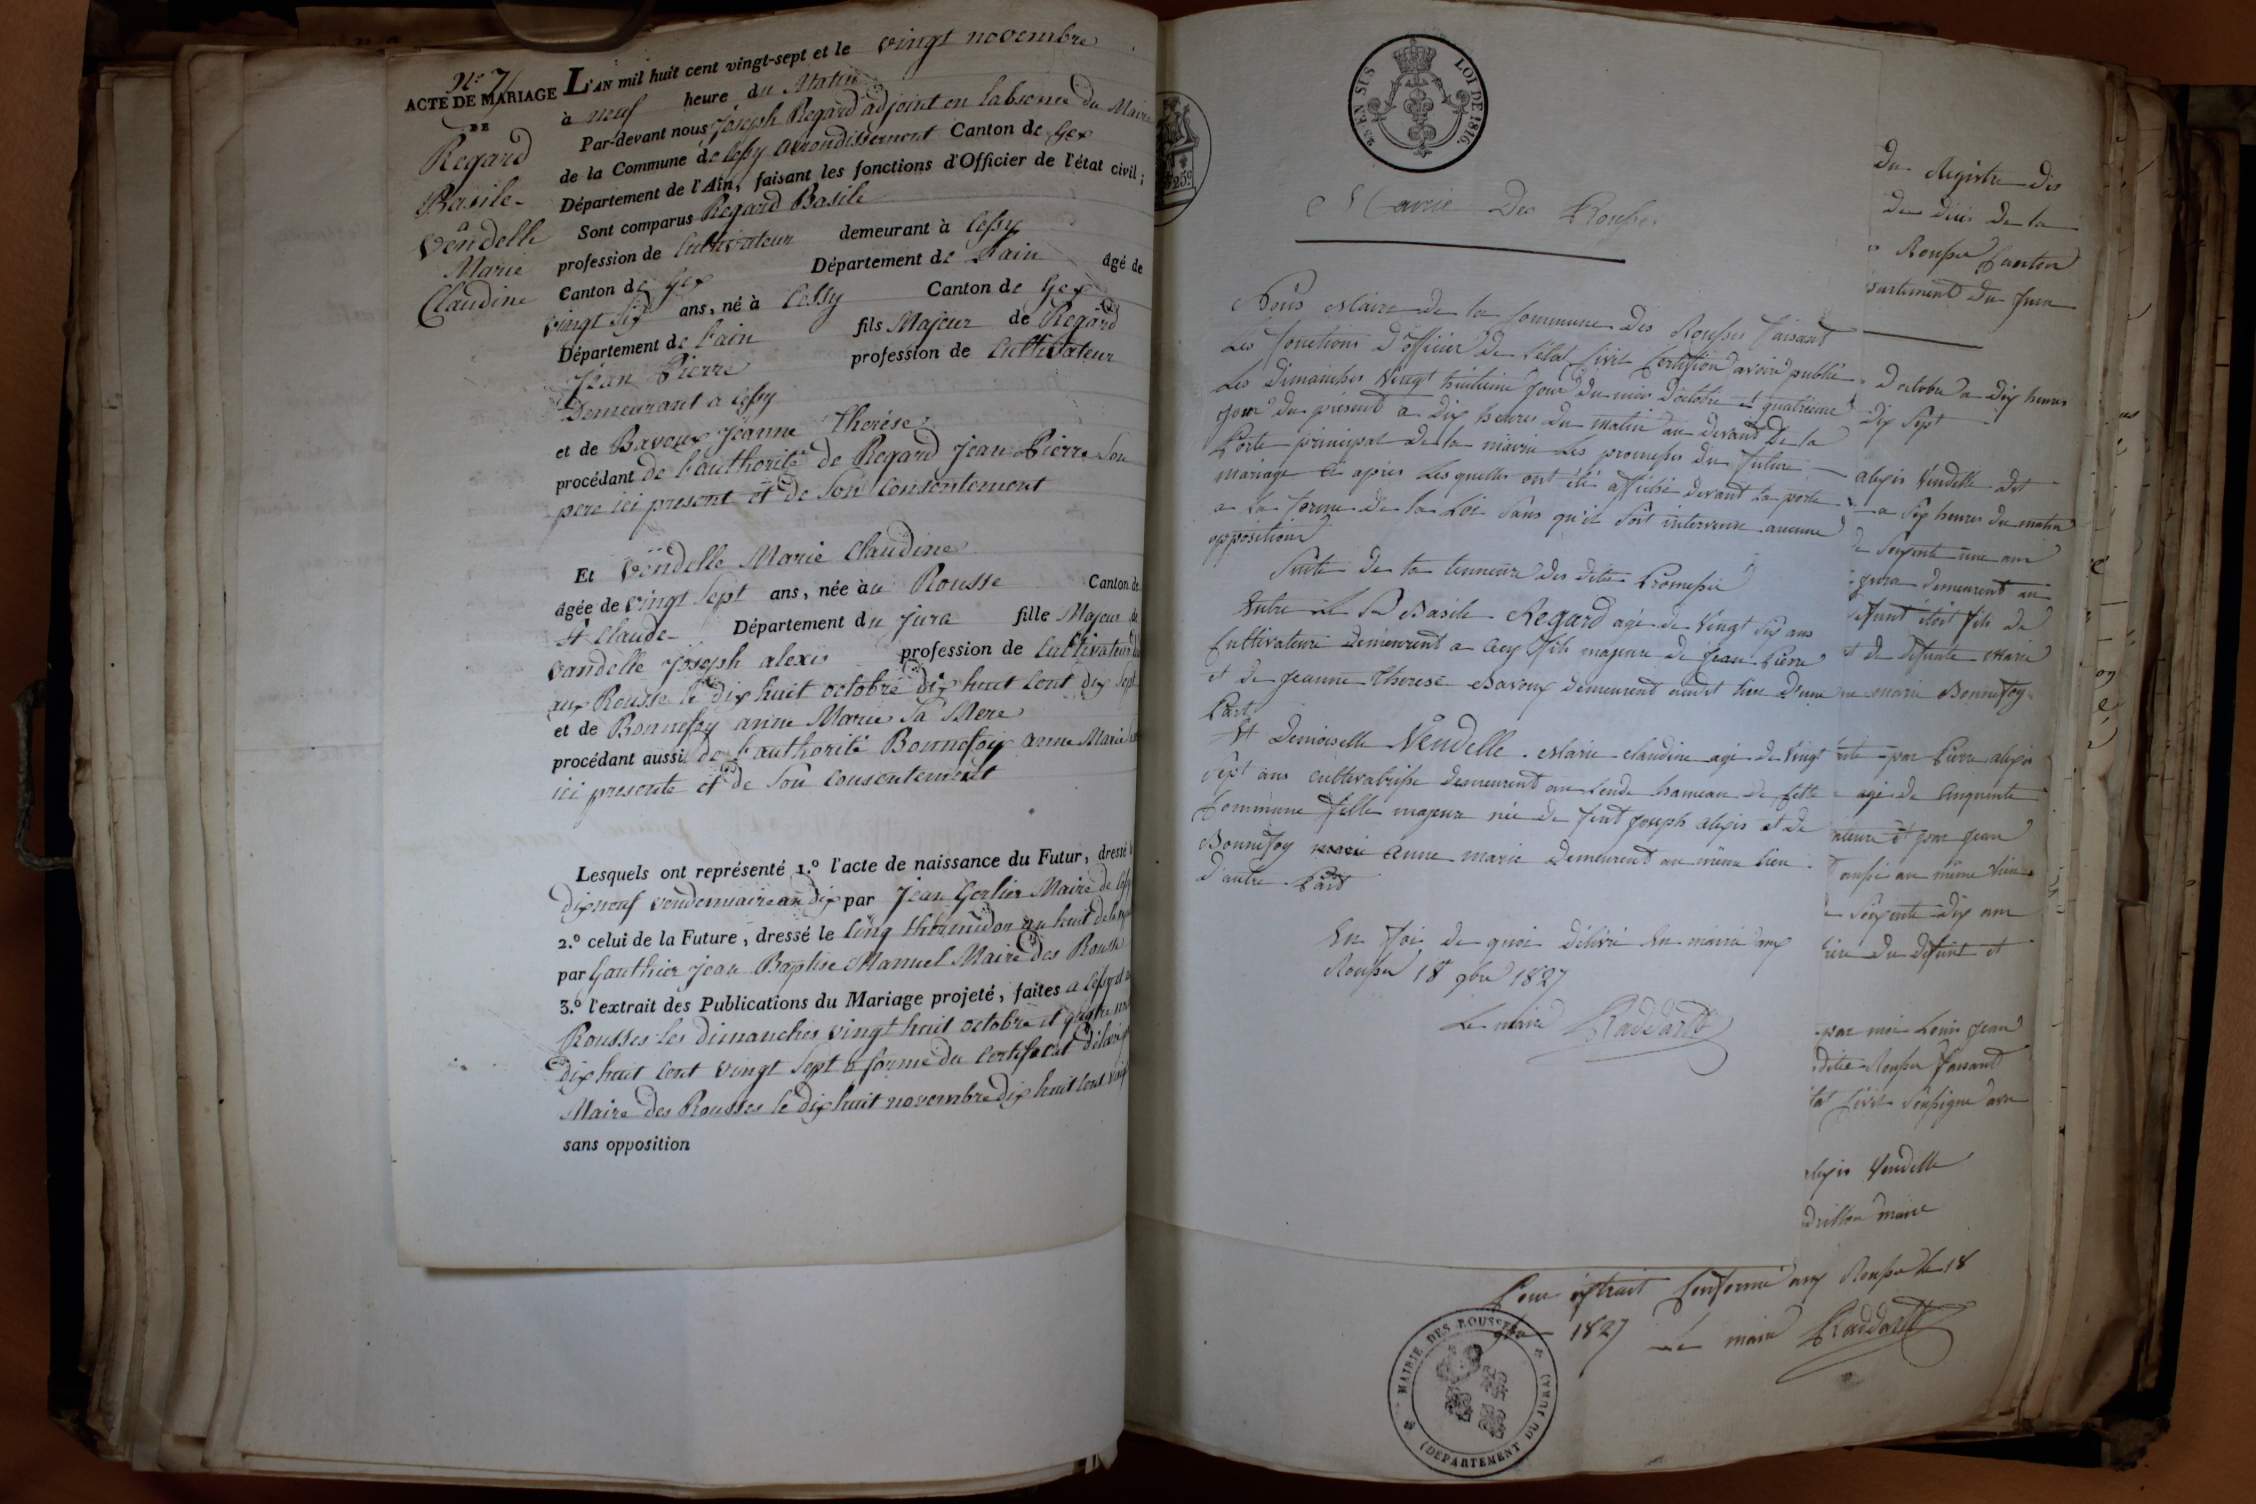 N.o 7
ACTE DE MARIAGE
DE
Regard
Basile
à
Vendelle
Marie
Claudine
L'AN mil huit cent vingt-sept et le vingt novembre
à neuf heure du Matin
Par-devant nous Joseph Regard adjoint en l'absence du Maire
de la Commune de Cessy arrondissement Canton de Gex
Département de l'Ain, faisant les fonctions d'Officier de l'état civil;
Sont comparus Regard Basile
profession de Cultivateur demeurant à Cessy
Canton de Gex Département de l'ain âgé de
vingt six ans, né à Cessy Canton de Gex
Département de l'ain fils Majeur de Regard
Jean Pierre profession de Cultivateur
Demeurant a Cessy
et de Bavoux Jeanne Therése
procédant de l'authorité de Regard Jean Pierre Son
pere ici present et de Son Consentement
Et Vendelle Marie Claudine
âgée de vingt Sept ans, née au Rousse Canton de
St Claude Département du Jura fille Majeur de
Vandelle Joseph alexis profession de Cultivateur
aux Rousse le dix huit octobre dix huit Cent dix Sept
et de Bonnefoy anne Marie Sa Mere
procédant aussi de l'authorité Bonnefoix anne Marie
ici presente et de Son Consentement
Lesquels ont représenté 1.º l'acte de naissance du Futur, dressé
dix neuf vendemiaire an dix par Jean Gerlier Maire de Cessy
2.º celui de la Future, dressé le Cinq thermidor an huit de la
par Gauthier Jean Baptise Manuel Maire des Rousse
3.º l'extrait des Publications du Mariage projeté, faites a Cessy et
Rousses les dimanches vingt huit octobre et quatre
dix huit Cent vingt Sept a forme du Certificat délivré
Maire des Rousses le dix huit novembre dix huit Cent vingt
sans opposition
25 EN SUS LOI DE 1816.
Mairie Des Rousses
Nous Maire de la Commune des Rousses faisant
Les fonctions d'officier de l'état Civil Certifion avoir publié
Les Dimanches Vingt huitieme Jour du mois d'octobre et quatrieme
Jour du présent a dix heures du matin au devant de la
Porte principal de la mairie Les promesses du future
mariage Ci apres Lesquelles ont été affiché devant la porte
a la forme de la Loi Sans qu'il Soit intervenue aucune
opposition
Suite de la tenneure des dites Promesses
Entre Le Sr Basile Regard agé de Vingt Six ans
Cultivateur demeurent a Cecy fils majeure de Jean Pierre
et de Jeanne Therese Bavoux demeurent audit lieu d'une
Part
Et Demoiselle Vendelle Marie Claudine agé de Vingt
Sept ans cultivatrisse demeurent au hameau de Cette
Commune fille majeur née de feut Joseph alexis et de
Bonnefoy anne marie demeurent au même lieu
D'autre Part
En foi de quoi délivré En mairie aux
Rousses 18 9bre 1827
Le maire
Du Registre des
des Décès de la
Rousses Canton
partement du Jura
D'octobre a dix heures
dix Sept
alexis Vendelle dit
a Six heures du matin
Soixente une ans
Jura demeurent au
defunt étoit fils de
et de defunte Marie
marie Bonnefoy
par Pierre alexis
agé de Cinquente
ateure et par Jean
aussi au même lieu
Soixente dix ans
du Defunt et
par moi Louis Jean
dite Rousses faisant
tat Civil Soussigné avec
lexis Vendelle
maire
Pour extrait Conforme aux Rousses le 18
9bre 1827 Le maire
MAIRIE DES ROUSSES
(DEPARTEMENT DU JURA)